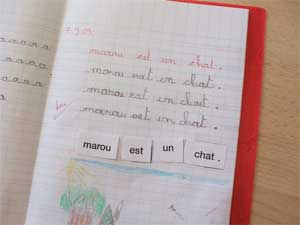 7.9.09.
marou est un chat.
marou est un chat.
marou est un chat.
marou est un chat.
marou est un chat.